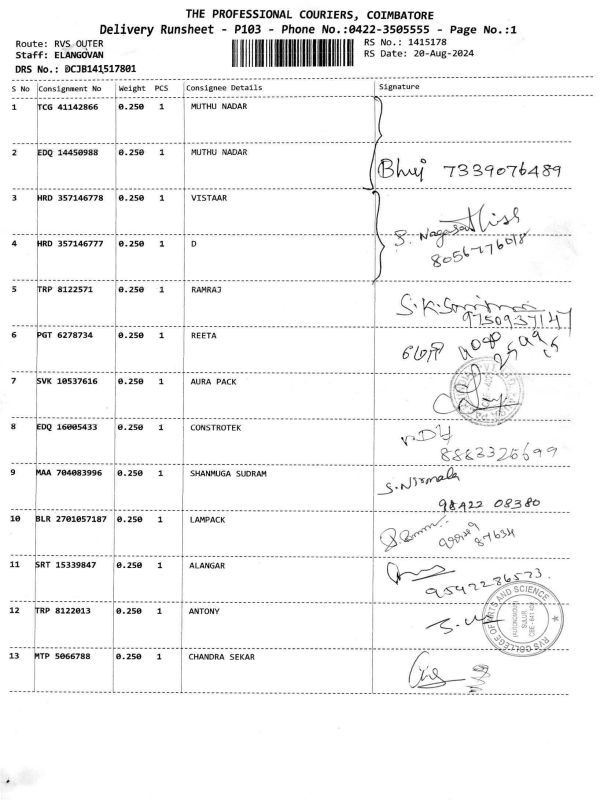 THE PROFESSIONAL COURIERS, COIMBATORE
Delivery Runsheet - P103 - Phone No.:0422-3505555 - Page No.:1
Route: RVS OUTER
RS No.: 1415178
Staff: ELANGOVAN
RS Date: 20-Aug-2024
DRS No.: DCJB141517801
S No Consignment No Weight PCS Consignee Details Signature
1 TCG 41142866 0.250 1 MUTHU NADAR
2 EDQ 14450988 0.250 1 MUTHU NADAR
Bhuj 7339076489
3 HRD 357146778 0.250 1 VISTAAR
S. Nagasathish
4 HRD 357146777 0.250 1 D
8056776018
5 TRP 8122571 0.250 1 RAMRAJ
9750937147
6 PGT 6278734 0.250 1 REETA
7 SVK 10537616 0.250 1 AURA PACK
8 EDQ 16005433 0.250 1 CONSTROTEK
8883326699
9 MAA 704083996 0.250 1 SHANMUGA SUDRAM
S. Nirmala
98422 08380
10 BLR 2701057187 0.250 1 LAMPACK
87634
11 SRT 15339847 0.250 1 ALANGAR
9597236573
12 TRP 8122013 0.250 1 ANTONY
RVS COLLEGE OF ARTS AND SCIENCE
(AUTONOMOUS)
SULUR
13 MTP 5066788 0.250 1 CHANDRA SEKAR